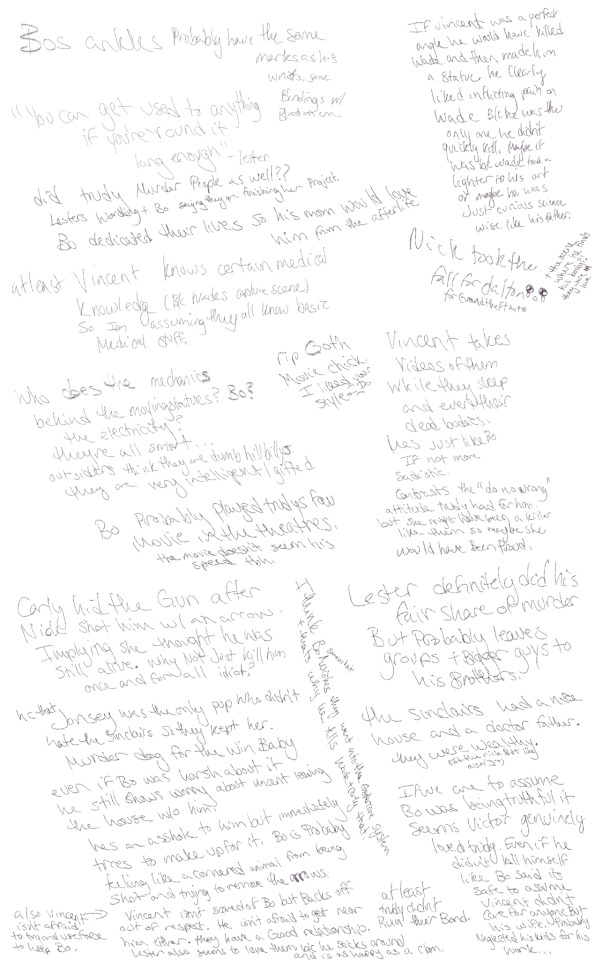 Bos ankles Probably have the same
marks as his
wrists, same
Bindings w/
"You can get used to anything
if you're round it
long enough" - lester
did trudy Murder People as well??
Lesters Wording + Bo saying they are finishing her Project.
Bo dedicated their lives so his mom would love
him from the afterlife
atleast Vincent knows certain medical
Knowledge (like Wades capture scene)
So Im assuming they all know basic
Medical stuff.
Who does the mechanics
behind the moving statues? Bo?
the electricity?
they're all smart...
outsiders think they are dumb hillbillys
they are very intelligent/gifted
rip Goth
Movie chick.
I loved your
style
Bo Probably played trudys fav
Movie in the theatres.
the movie doesn't seem his
speed tbh.
If vincent was a perfect
angle he would have killed
wade and then made him
a statue. he clearly
liked inflicting pain on
Wade B/c he was the
only one he didn't
quickly kill. Maybe it
was bc wade took a
lighter to his art
or maybe he was
Just curious science
wise like his father.
Nick took the
fall for dalton
for Grand theft auto.
Vincent takes
Videos of them
While they sleep
and even their
dead bodies.
hes Just like Bo
IF not more
sadistic.
Contrasts the "do no wrong"
attitude trudy had for him.
but she might have been a killer
like them so maybe she
would have Been Proud.
Carly hid the Gun after
Nick shot him w/ an arrow.
Implying she thought he was
Still alive. why Not Just kill him
once and for all idiot?
Jonsey was the only pup who didn't
hate the Sinclairs so they kept her.
Murder dog for the win Baby
even if Bo was harsh about it
he still shows worry about vincent leaving
the house w/o him.
hes an asshole to him but immediately
tries to make up for it. Bo is Probably
feeling like a cornered animal from being
Shot and trying to remove the arrows.
Vincent isnt scared of Bo but Backs off
out of respect. He isn't afraid to get near
him either. they have a Good relationship.
Lester also seems to love them b/c he sticks around
and is as happy as a clam.
also vincent →
isnt afraid
to try and use force
to help Bo.
Lester definitely did his
fair share of murder
But Probably leaves
groups + Bigger guys to
his Brothers.
the sinclairs had a nice
house and a doctor father.
they were wealthy.
IF we are to assume
Bo was being truthful it
Seems Victor genuinely
loved trudy. Even if he
didn't kill himself
like Bo said its
safe to assume
Vincent didn't
Care for anyone But
his wife. Probably
Neglected his kids for his
Work...
at least
trudy didn't
Ruin their Bond.